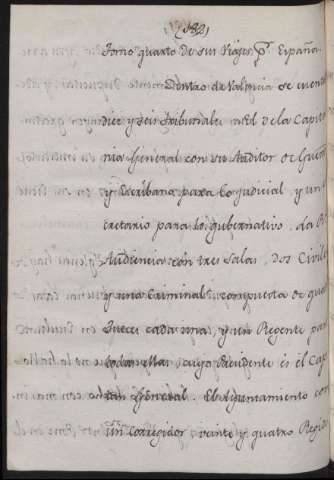 (182)
Tomo quarto de sus Viajes pr. España.
Dentro de Valencia se cuen
diez y seis tribunales. El de la Capita
nia General con su Auditor de Guerra
y Escribano para lo judicial, y un
cretario para lo gubernativo. La R.
Audiencia con tres Salas, dos Civiles
y una Criminal: compuesta de qua
Jueces cada una, y un Regente para
todas ellas, cuyo Presidente es el Cap
tan General. El Ayuntamiento con
un corregidor veinte y quatro Regid